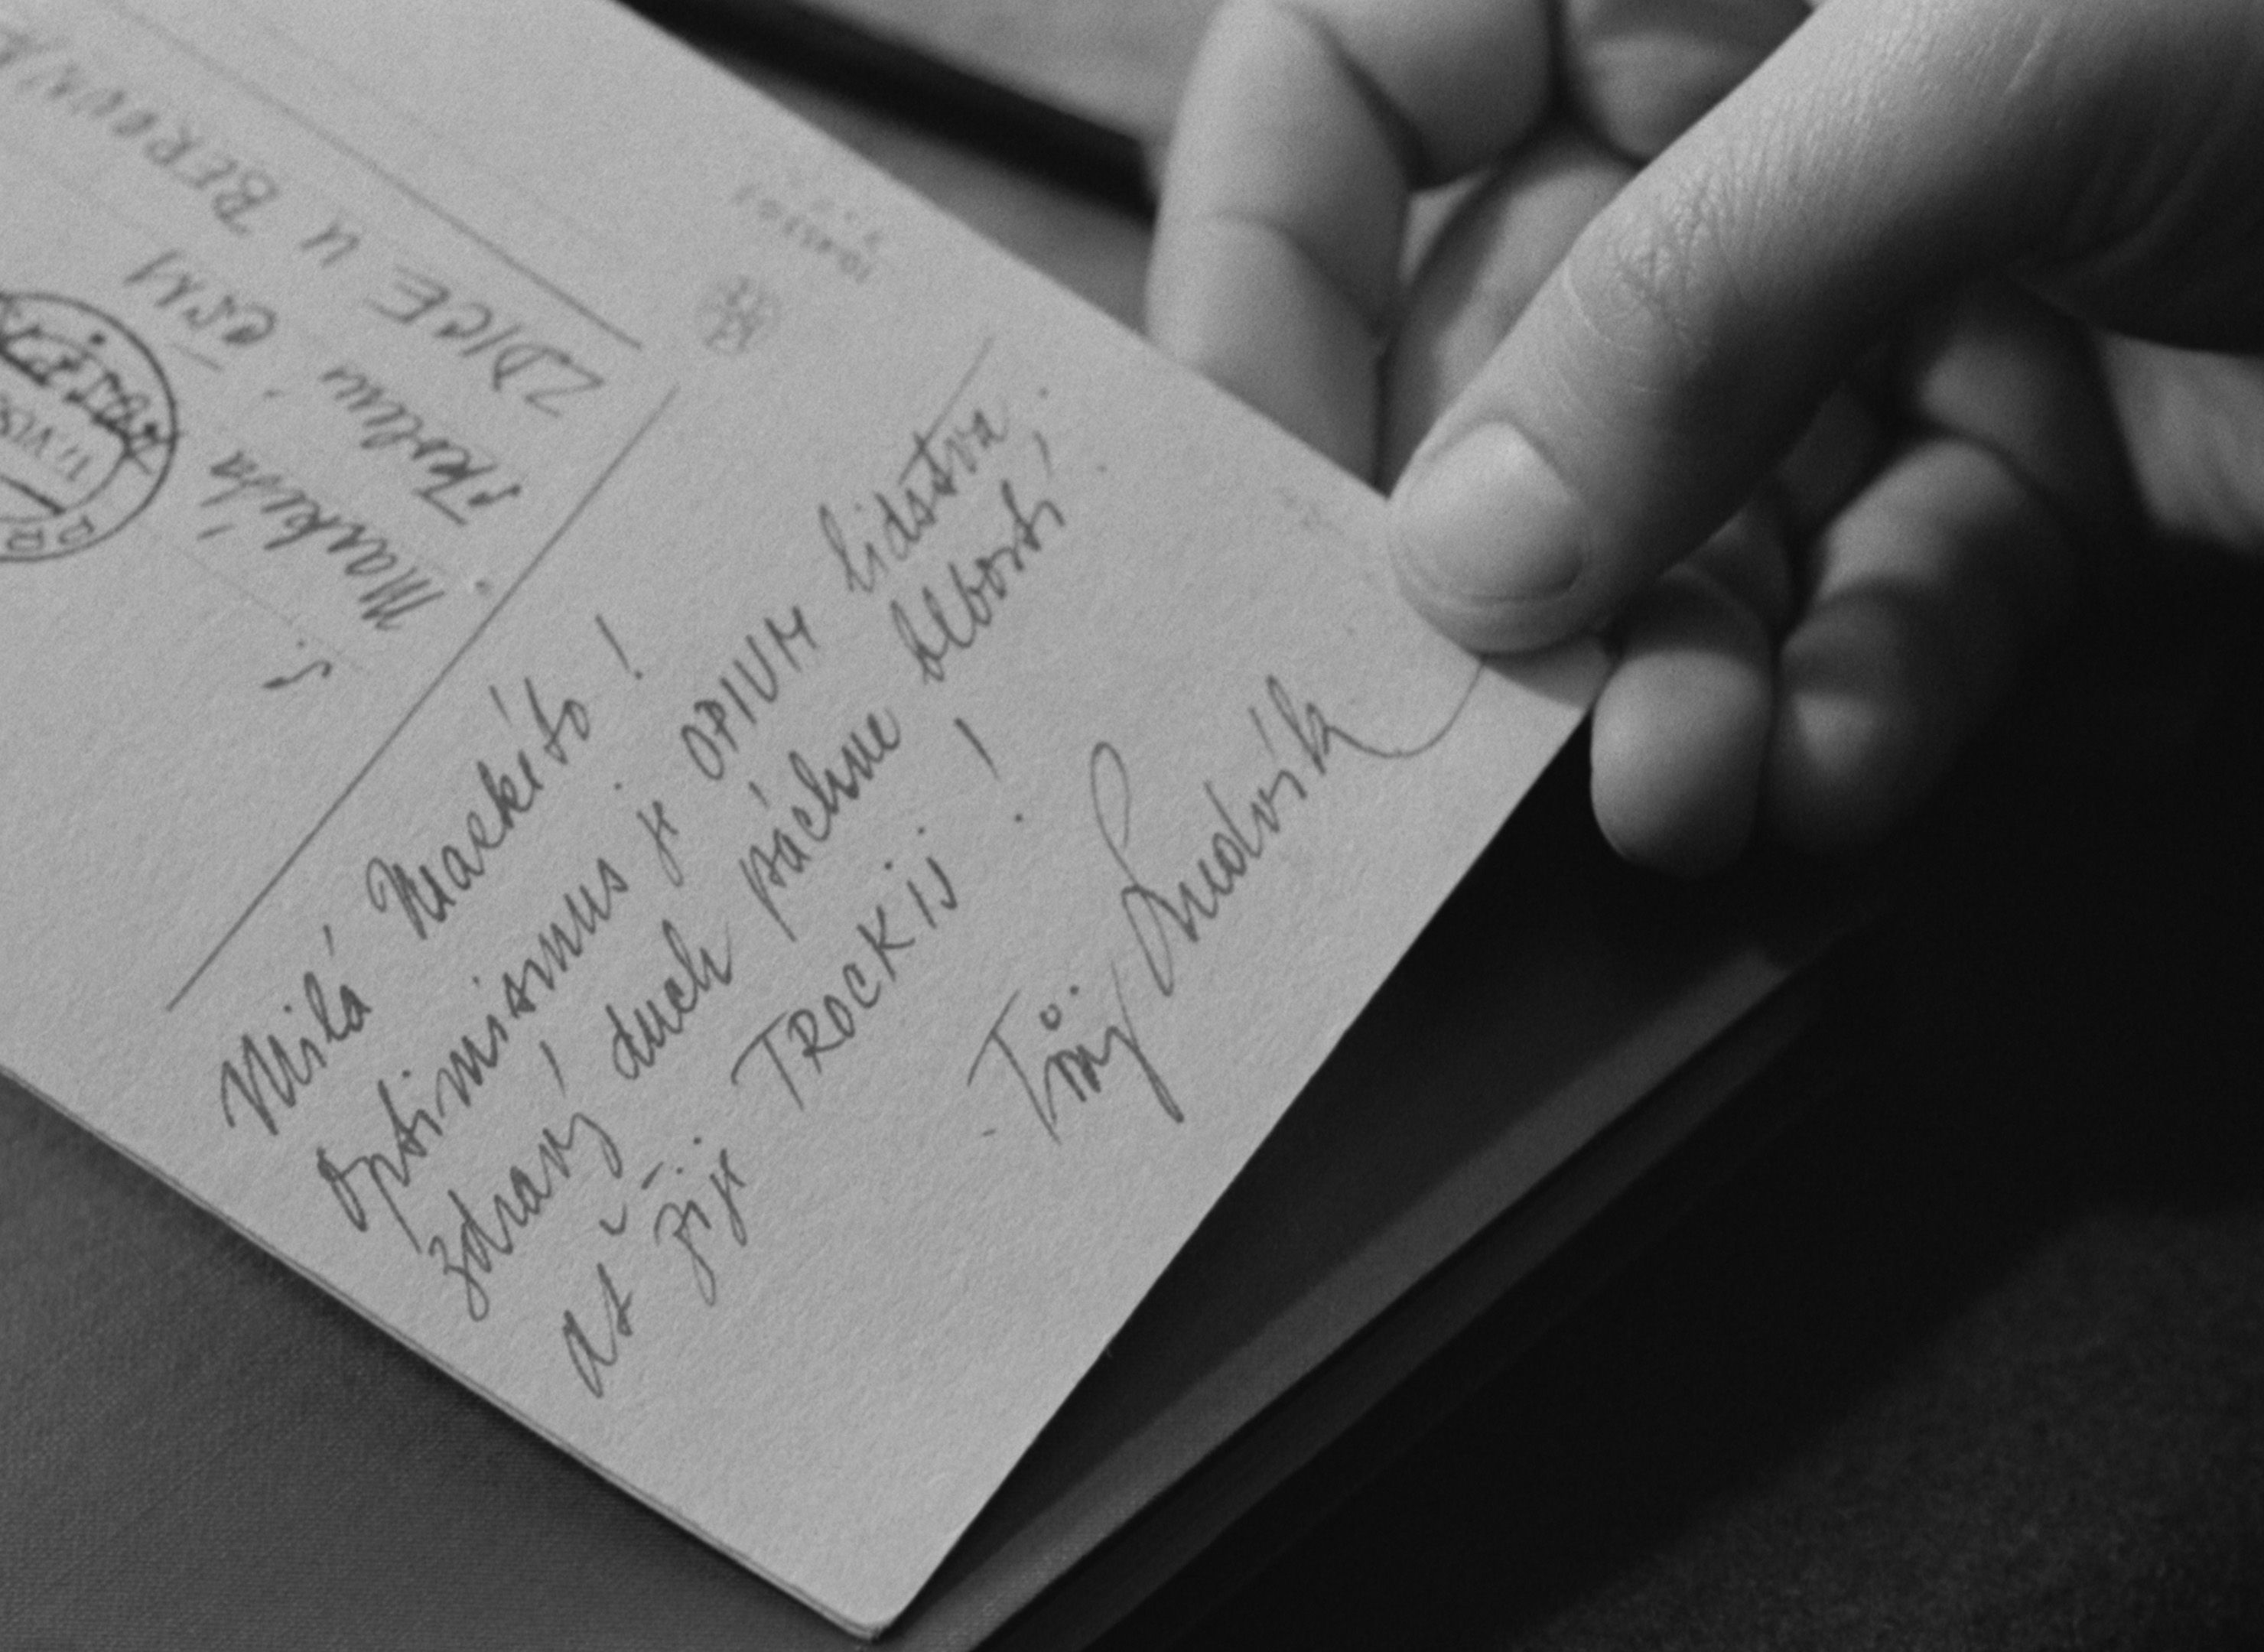 Milá Markéto!
Optimismus je OPIUM lidstva.
zdravý duch páchne blbostí!
ať žije TROCKIJ!
Tvůj Ludvík
S.
Markéta
školení ČSM
ZDICE U BEROUNA